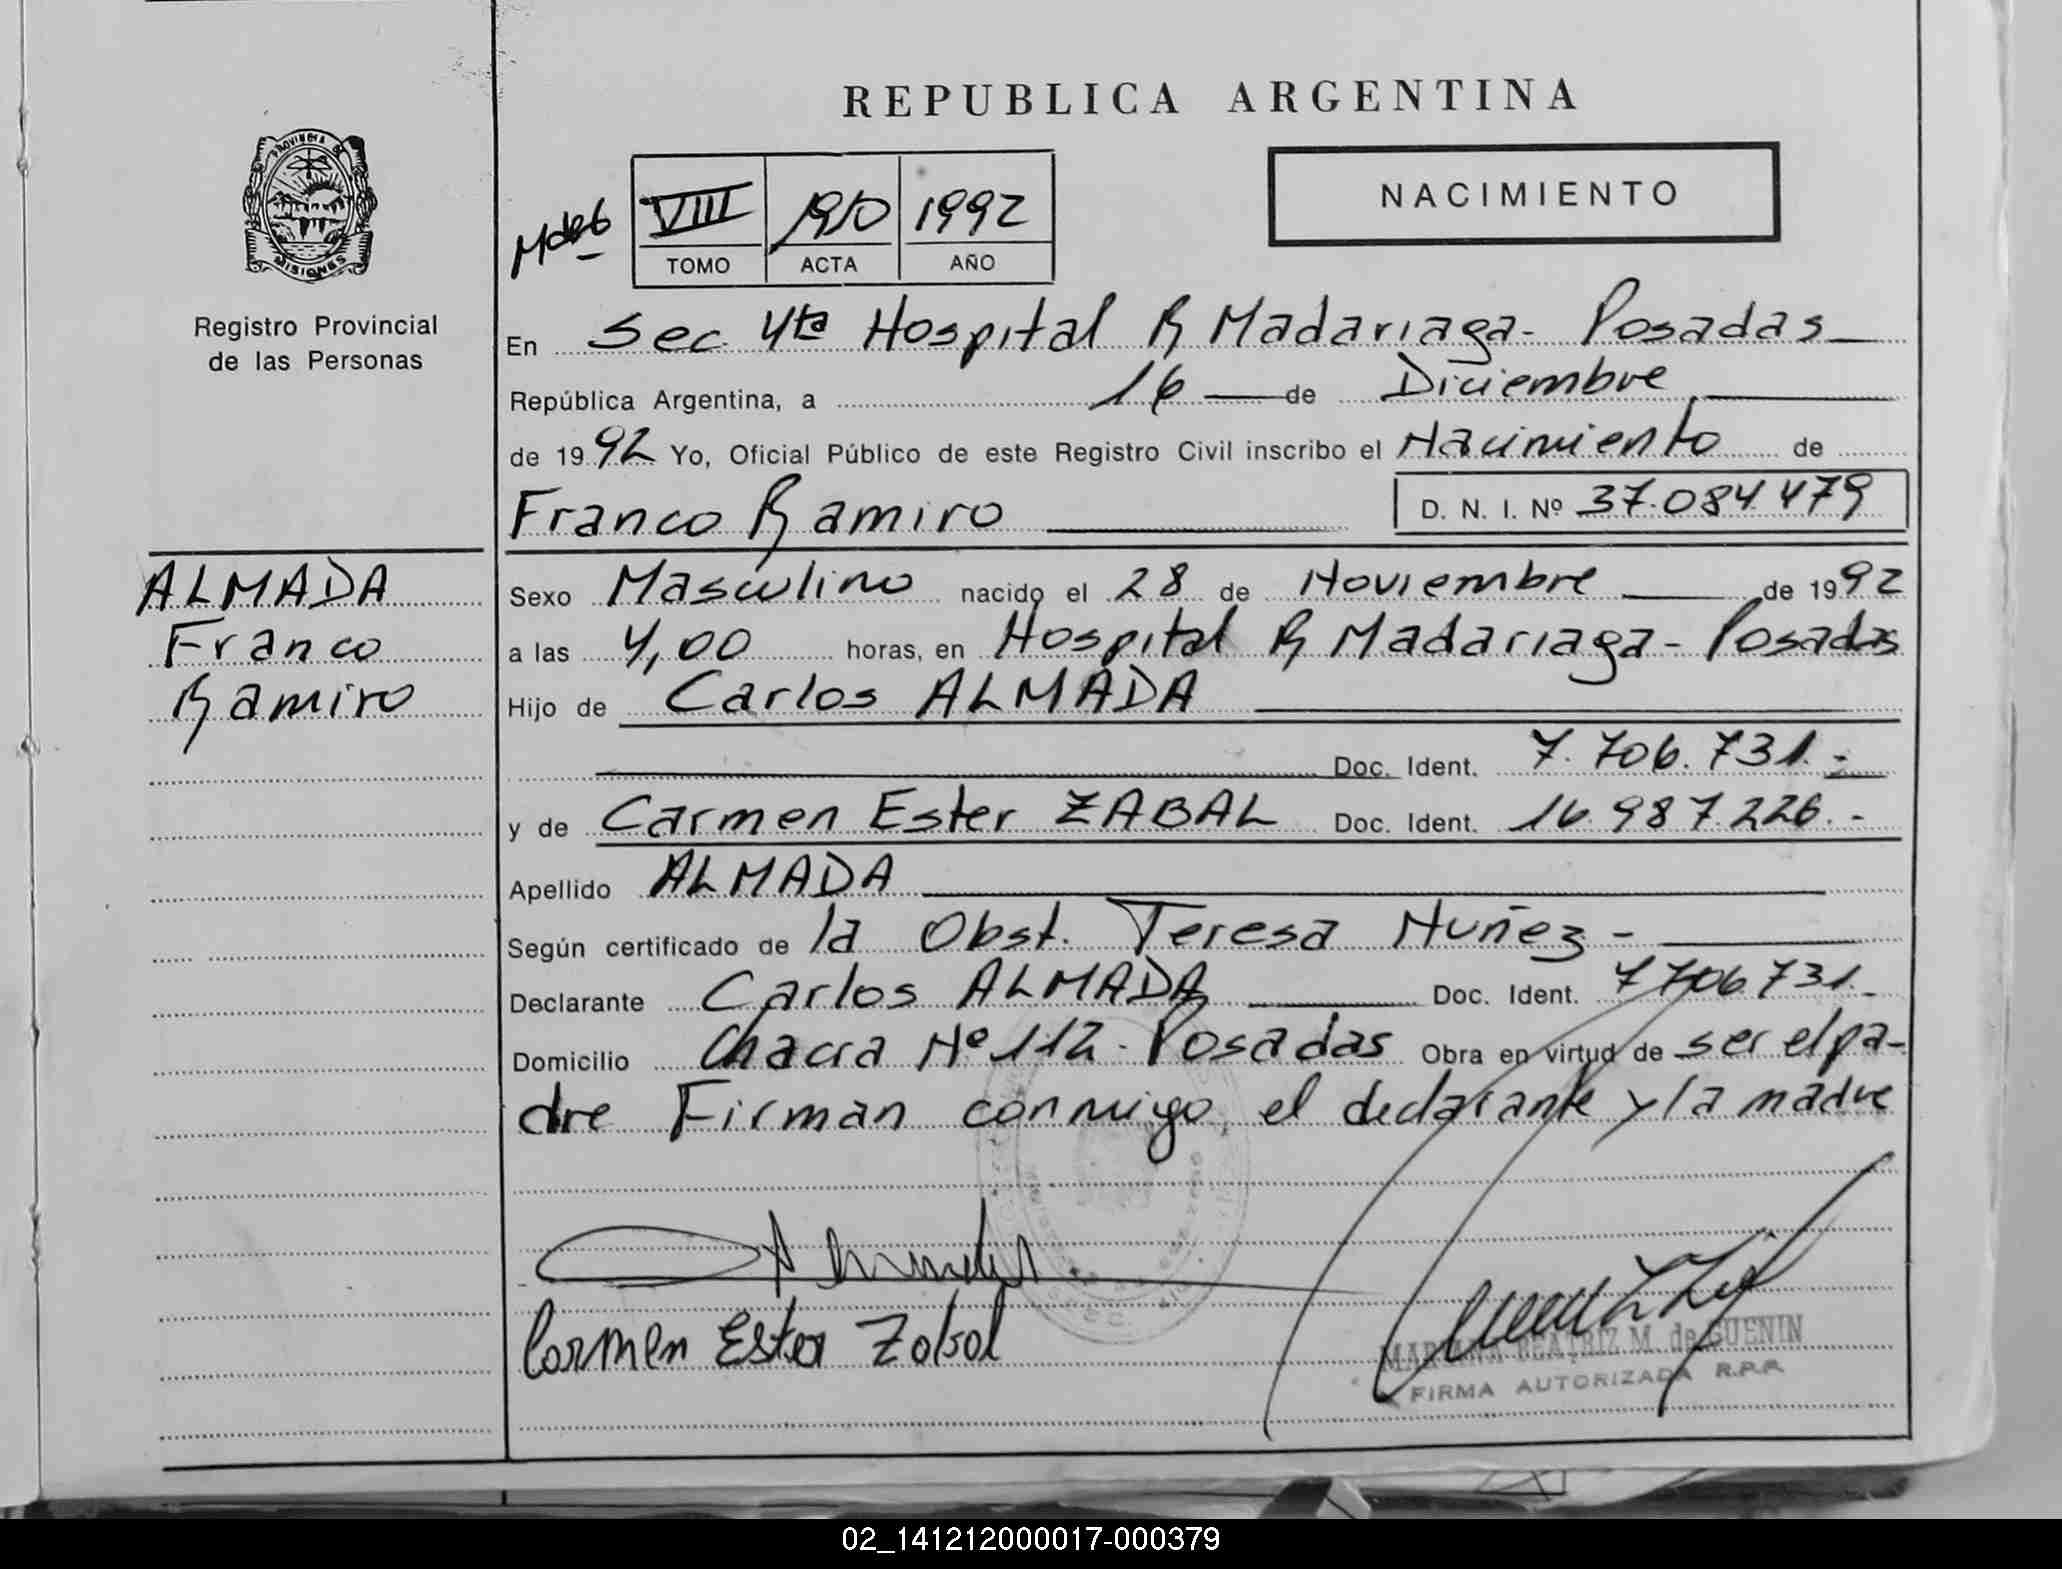 REPUBLICA ARGENTINA
PROVINCIA DE
MISIONES
Registro Provincial
de las Personas
VIII
TOMO
1950
ACTA
1992
AÑO
NACIMIENTO
En Sec. 4ta Hospital R Madariaga - Posadas
República Argentina, a 16 de Diciembre
de 1992 Yo, Oficial Público de este Registro Civil inscribo el Nacimiento de
Franco Ramiro D. N. I. Nº 37.084.479
ALMADA
Franco
Ramiro
Sexo Masculino nacido el 28 de Noviembre de 1992
a las 4,00 horas, en Hospital R Madariaga - Posadas
Hijo de Carlos ALMADA
Doc. Ident. 7.706.731.-
y de Carmen Ester ZABAL Doc. Ident. 16.987.226.-
Apellido ALMADA
Según certificado de la Obst. Teresa Nuñez -
Declarante Carlos ALMADA Doc. Ident. 7706731.-
Domicilio Chacra Nº 112 - Posadas Obra en virtud de ser el pa-
dre Firman conmigo, el declarante y la madre
Carmen Ester Zabal
MARIANA BEATRIZ M. de GUENIN
FIRMA AUTORIZADA R.P.P.
02_141212000017-000379